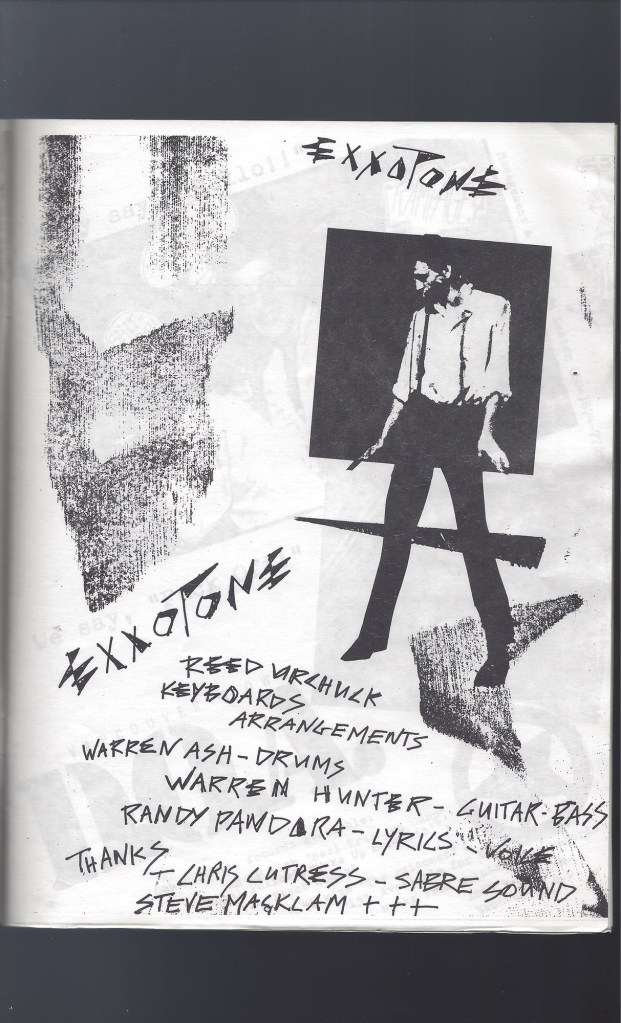 EXXOTONE
EXXOTONE
REED URCHUCK
KEYBOARDS
ARRANGEMENTS
WARREN ASH - DRUMS
WARREN HUNTER - GUITAR - BASS
RANDY PANDORA - LYRICS - VOICE
THANKS
+ CHRIS CUTRESS - SABRE SOUND
STEVE MACKLAM + + +